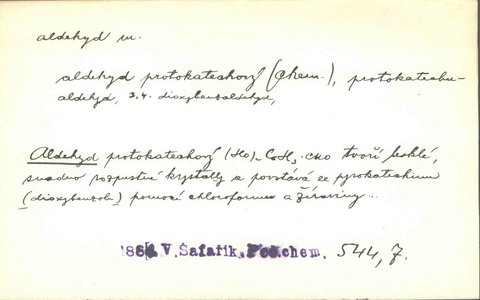 aldehyd m.
aldehyd protokatechový (Chem.), protokatechu-
aldehyd, 3.4. dioxybenzaldehyd,
Aldehyd protokatechový (HO)₂ C₆H₃ . CHO tvoří lesklé,
snadno rozpustné krystally a povstává ze pyrokatechinu
(dioxybenzolu) pomocí chloroformu a žíraviny...
V. Šafařík, Poč. chem. 544, 7.